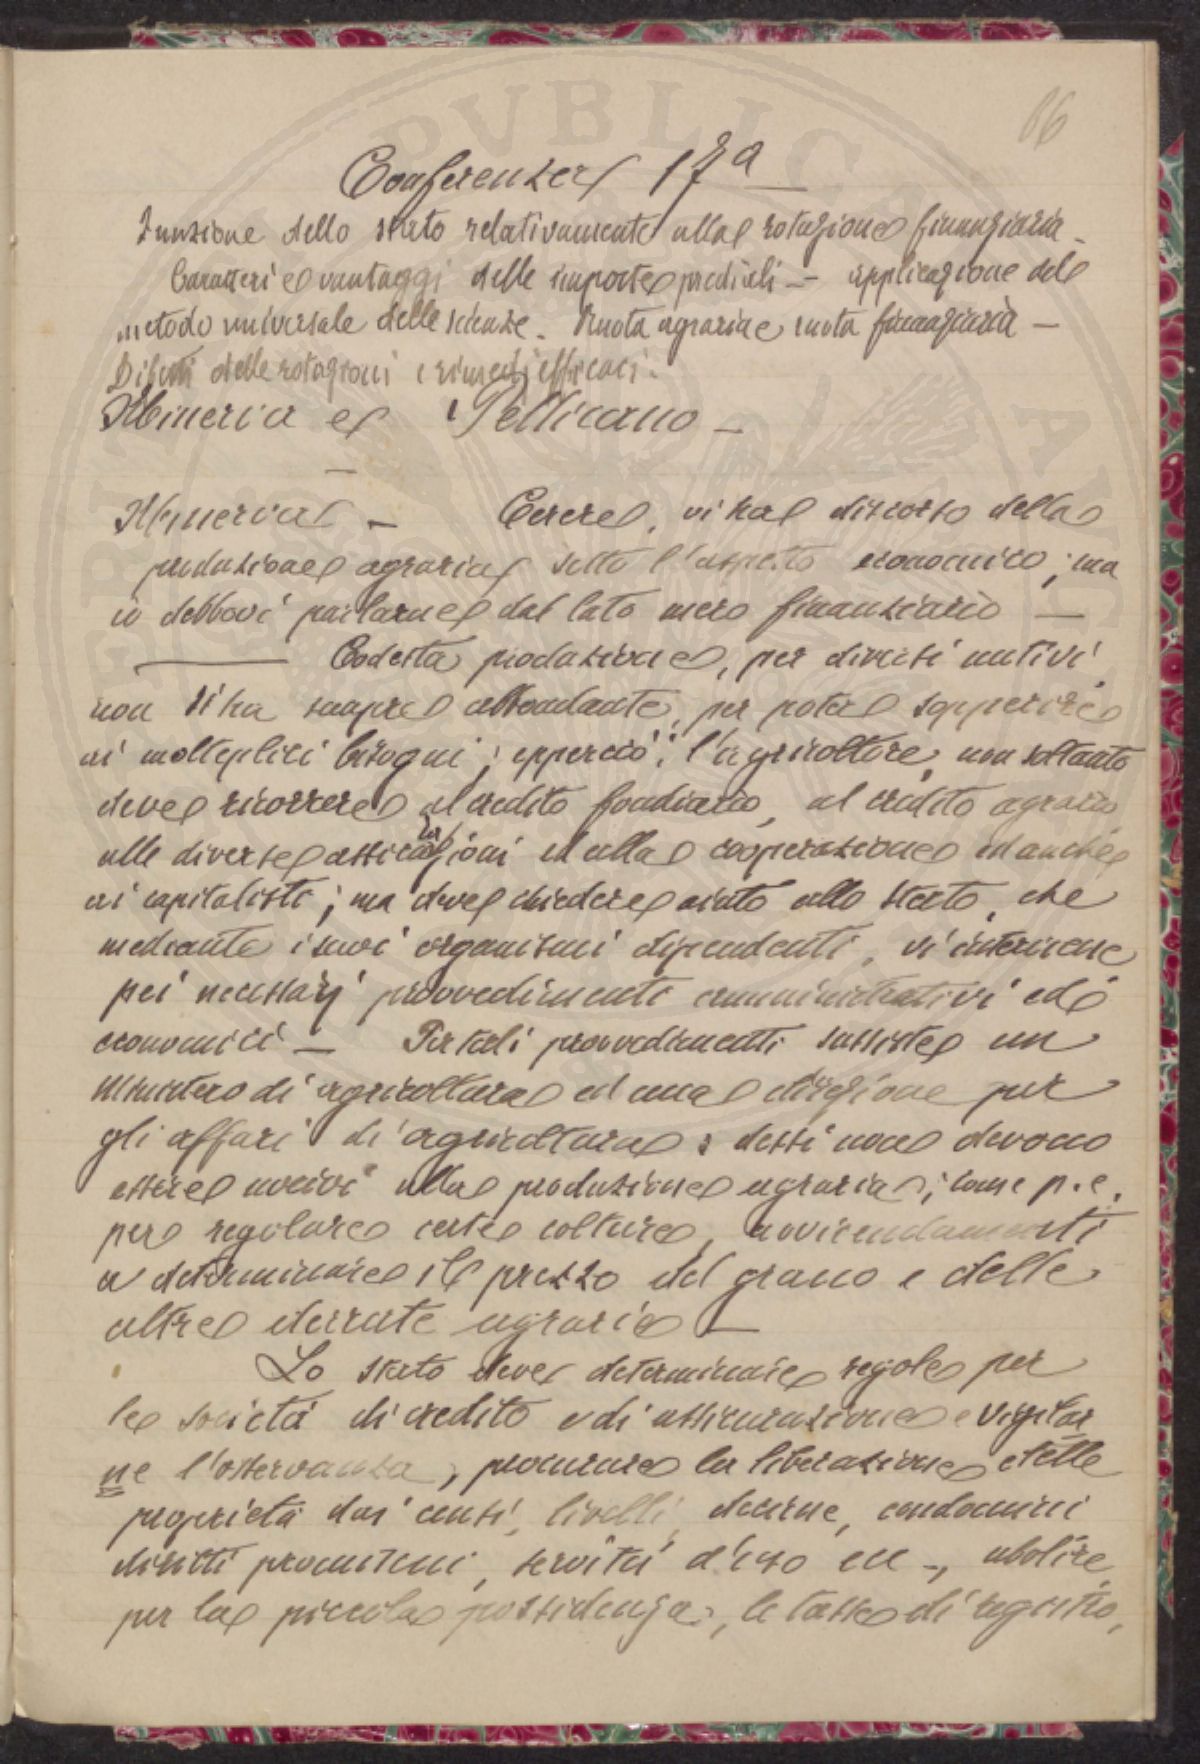 86
Conferenza 17a
Funzione dello stato relativamente alla rotazione finanziaria -
Caratteri e vantaggi delle imposte prediali - applicazione del
metodo universale delle scienze - Ruota agraria e ruota finanziaria -
Difetti delle rotazioni e rimedj efficaci -
Minerva e Pellicano -
Minerva - Cerere, vi ha discorso della
produzione agraria sotto l'aspetto economico; ma
io debbovi parlarne dal lato mero finanziario -
Codesta produzione, per diversi motivi,
non si ha sempre abbondante, per poter sopperire
ai molteplici bisogni; epperciò, l'agricoltore, non soltanto
deve ricorrere al credito fondiario, al credito agrario
alle diverse assicurazioni ed alla cooperazione ed anche
ai capitalisti; ma deve chiedere aiuto allo Stato, che
mediante i suoi organismi dipendenti, vi interviene
pei necessarj provvedimenti amministrativi ed
economici - Per tali provvedimenti sussiste un
Ministero di agricoltura ed una direzione per
gli affari di agricoltura: dessi non devono
essere nocivi alla produzione agraria; come p. e.
per regolare certe colture, avvicendamenti
a determinare il prezzo del grano e delle
altre derrate agrarie -
Lo stato deve determinare regole per
le società di credito e di assicurazione e vigilar
ne l'osservanza, procurare la liberazione delle
proprietà dai censi, livelli, decime, condomini
diritti promiscui, servitù d'uso ecc -, abolire
per la piccola possidenza, le tasse di registro,